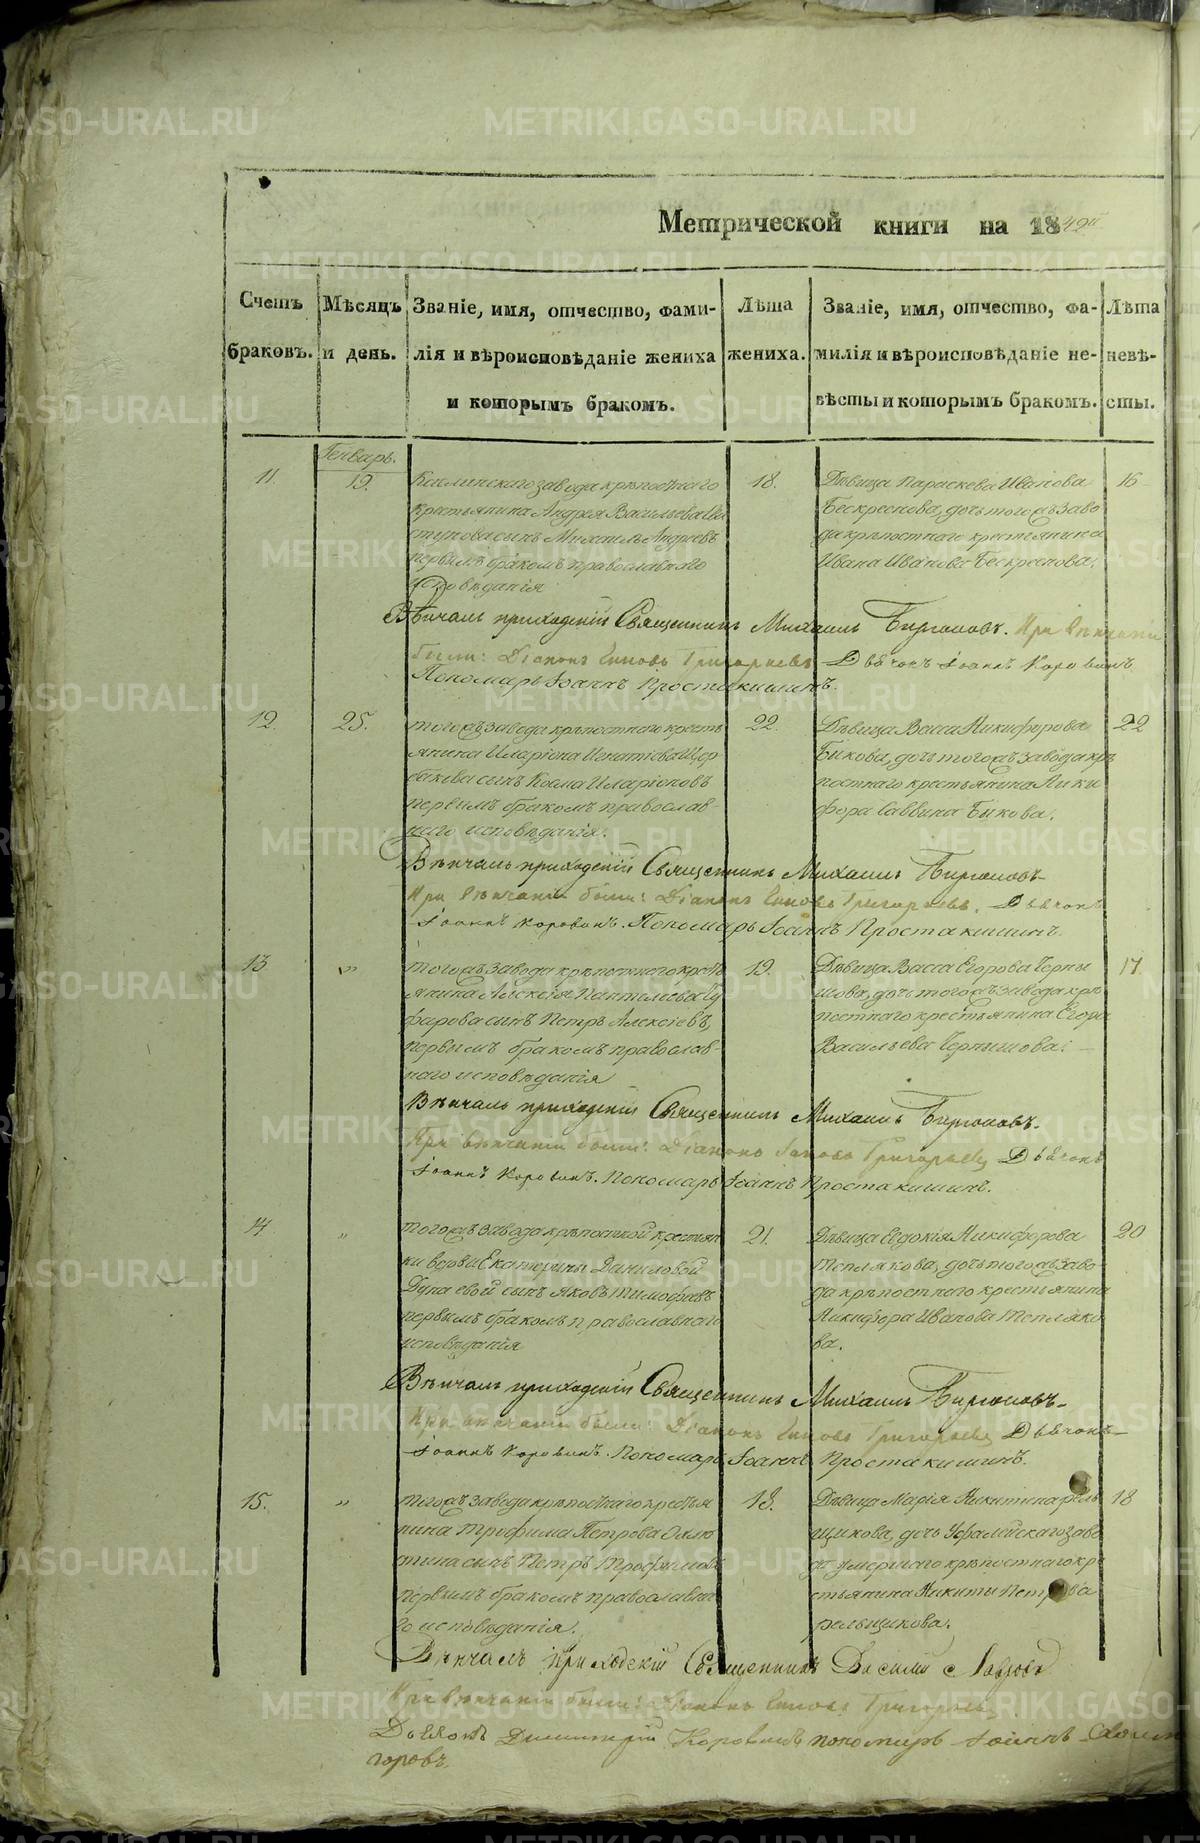 Метрической книги на 1849й
Счетъ браковъ.
Мѣсяцъ и день.
Званіе, имя, отчество, фами-
лія и вѣроисповѣданіе жениха
и которымъ бракомъ.
Лѣта
жениха.
Званіе, имя, отчество, фа-
милія и вѣроисповѣданіе не-
вѣсты и которымъ бракомъ.
Лѣта
невѣ-
сты.
Генварь.
11.
19.
Каслинскаго завода крѣпостнаго
крестьянина Андрея Васильева
сынъ Михаилъ Андреевъ
первымъ бракомъ православнаго
исповѣданія
18.
Дѣвица Параскева Иванова
Бескреснова, дочь тогожъ заво
да крѣпостнаго крестьянина
Ивана Иванова Бескреснова.
16
Вѣнчалъ приходскій Священникъ Михаилъ Бирюковъ. При вѣнчаніи
были: Діаконъ Григорьевъ Дьячокъ Іоаннъ Коровинъ
Пономарь Іоаннъ Простакишинъ.
12.
25.
тогожъ завода крѣпостнаго кресть
янина Иларіона Игнатіева Щер
бакова сынъ Козма Иларіоновъ
первымъ бракомъ православ-
наго исповѣданія.
22.
Дѣвица Васса Никифорова
Быкова, дочь тогожъ завода крѣ
постнаго крестьянина Ники
фора Саввина Быкова.
22
Вѣнчалъ приходскій Священникъ Михаилъ Бирюковъ
При вѣнчаніи были: Діаконъ Григорьевъ. Дьячокъ
Іоаннъ Коровинъ. Пономарь Іоаннъ Простакишинъ.
13
"
тогожъ завода крѣпостнаго крест
янина Алексія Пантелеева
сынъ Петръ Алексіевъ,
первымъ бракомъ православ-
наго исповѣданія
19.
Дѣвица Васса Егорова Черны
шова, дочь тогожъ завода крѣ
постнаго крестьянина Егора
Васильева Чернышова.
17.
Вѣнчалъ приходскій Священникъ Михаилъ Бирюковъ.
При вѣнчаніи были: Діаконъ Григорьевъ Дьячокъ
Іоаннъ Коровинъ. Пономарь Іоаннъ Простакишинъ.
14
"
тогожъ завода крѣпостной крестьян
ки вдовы Екатерины Даниловой
сынъ Яковъ Тимофеевъ
первымъ бракомъ православнаго
исповѣданія
21.
Дѣвица Евдокія Никифорова
Теплякова, дочь тогожъ заво-
да крѣпостнаго крестьянина
Никифора Иванова Тепляко
ва.
20
Вѣнчалъ приходскій Священникъ Михаилъ Бирюковъ
При вѣнчаніи были: Діаконъ Григорьевъ Дьячокъ
Іоаннъ Коровинъ. Пономарь Іоаннъ Простакишинъ.
15.
"
тогожъ завода крѣпостнаго крестья
нина Трофима Петрова
сынъ Петръ Трофимовъ
первымъ бракомъ православна
го исповѣданія.
18.
Дѣвица Марія Никитина
дочь Уфалейскаго заво
да умершаго крѣпостнаго кре
стьянина Никиты Петрова
18
Вѣнчалъ приходскій Священникъ Василій
При вѣнчаніи были: Діаконъ Григорьевъ
Димитрій Коровинъ пономарь Іоаннъ